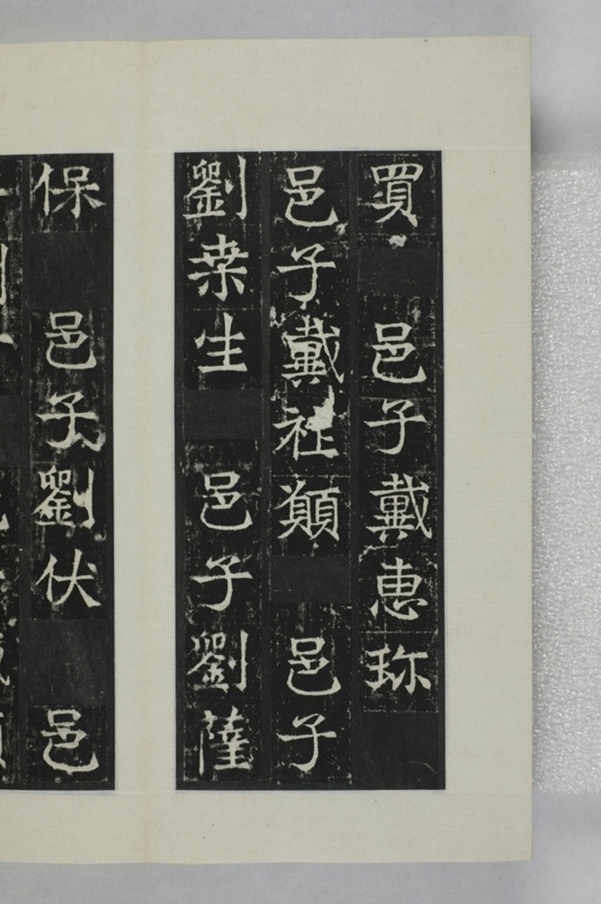 買 邑子戴惠珎
邑子戴社顛 邑子
劉桒生 邑子劉薩
保 邑子劉伏 邑